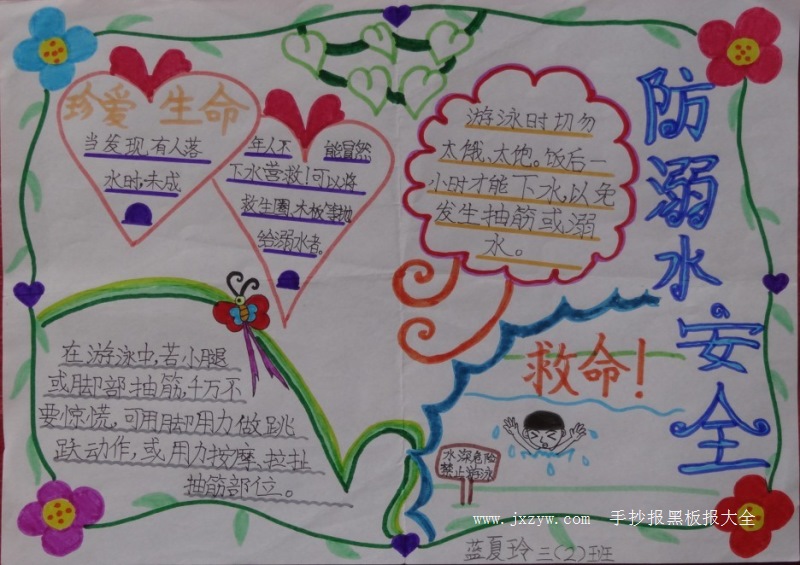 珍爱 生命
当发现有人落
水时,未成
年人不 能冒然
下水营救!可以将
救生圈、木板等抛
给溺水者。
游泳时切勿
太饿、太饱。饭后一
小时才能下水,以免
发生抽筋或溺
水。
防溺水安全
在游泳中,若小腿
或脚部抽筋,千万不
要惊慌,可用脚用力做跳
跃动作,或用力按摩、拉扯
抽筋部位。
救命!
水深危险
禁止游泳
www.jxzyw.com 手抄报黑板报大全
蓝夏玲 三(2)班